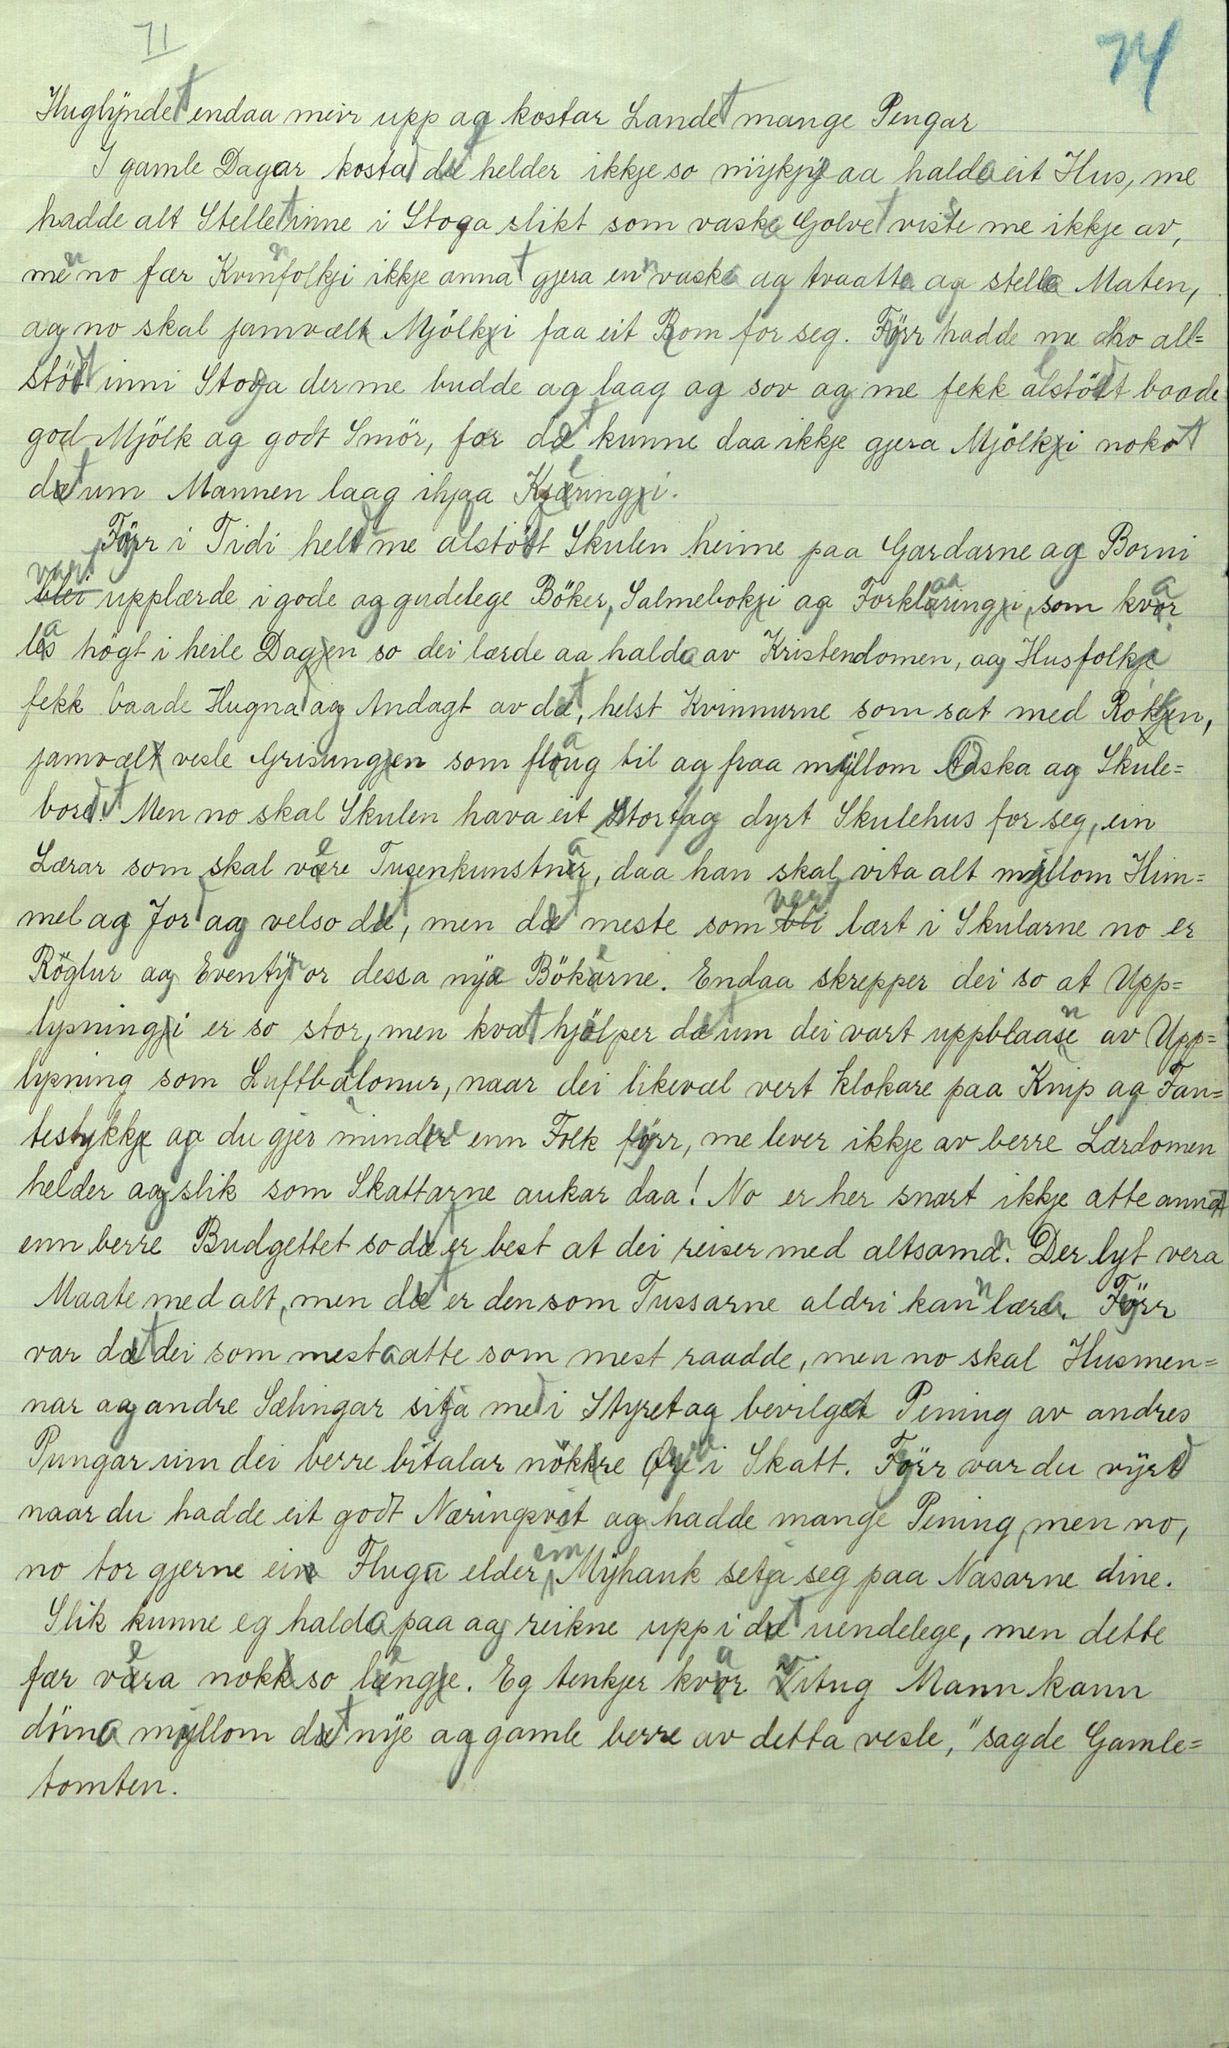 71
74
Huglyndet endaa meir upp og kostar Landet mange Pengar
I gamle Dagar kostad det helder ikkje so mykje aa halda eit Hus, me
hadde alt Stellet inne i Stoga slikt som vaska Golvet visste me ikkje av,
men no fær Kvinnfolkji ikkje annat gjera enn vaska og tvaatta og stella Maten,
og no skal jamvæl Mjölki faa eit Rom for seg. Fyrr hadde me ho all=
stödt inni Stoga der me budde og laag og sov og me fekk allstödt baade
god Mjölk og godt Smör, for det kunne daa ikkje gjera Mjölki nokot
det um Mannen laag ihjaa Kjeringi.
Fyrr i Tidi heldt me alstödt Skulen heime paa Gardarne og Borni
vart upplærde i gode og gudelege Böker, Salmeboki og Forklaaringi, som kvar
las högt i heile Dagen so dei lærde aa halda av Kristendomen, og Husfolke
fekk baade Hugnad og Andagt av det, helst Kvinnurne som sat med Rokken,
jamvæl vesle Grisungen som flaug til og fraa myllom Aaska og Skule=
bordet. Men no skal Skulen hava eit Stort og dyrt Skulehus for seg, ein
Lærar som skal vere Tusenkunstnar, daa han skal vita alt myllom Him=
mel og Jord og velso det, men det meste som vert lært i Skularne no er
Röglur og Eventyr or dessa nya Bökerne. Endaa skrepper dei so at Upp=
lysningi er so stor, men kvat hjölper det um dei vart uppblaasne av Upp=
lysning som Luftballonur, naar dei likevæl vert klokare paa Knip og Fan=
testykkje og du gjer mindre enn Folk fyrr, me lever ikkje av berre Lærdomen
helder og slik som Skattarne aukar daa! No er her snart ikkje atte annat
enn berre Budgettet so det er best at dei reiser med altsaman. Der lyt vera
Maate med alt, men det er den som Tussarne aldri kann læra. Fyrr
var det dei som mest aatte som mest raadde, men no skal Husmen=
nar og andre Sælingar sitja med i Styret og bevilget Pening av andres
Pungar um dei berre bitalar nökre Öyre i Skatt. Fyrr var du vyrd
naar du hadde eit godt Næringsvit og hadde mange Pening, men no,
no tor gjerne ein Fluga elder ein Myhank setja seg paa Nasarne dine.
Slik kunne eg halda paa og reikne upp i det uendelege, men dette
fær vera nok so lengje. Eg tenkjer kvar Vitug Mann kann
döma myllom det nye og gamle berre av detta vesle," sagde Gamle=
tomten.